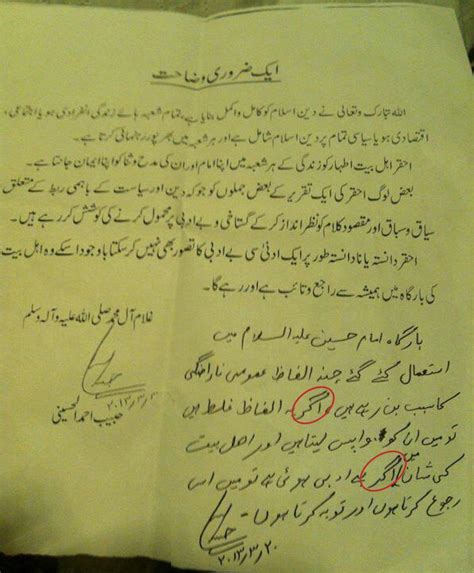 ایک ضروری وضاحت
اللہ تبارک وتعالیٰ نے دین اسلام کو کامل واکمل بنایا ہے، تمام شعبہ ہائے زندگی انفرادی ہو یا اجتماعی،
اقتصادی ہو یا سیاسی تمام پر دین اسلام شامل ہے اور ہر شعبہ میں بھرپور رہنمائی کرتا ہے۔
احقر اہل بیت اطہار کو زندگی کے ہر شعبہ میں اپنا امام اور ان کی مدح وثنا کو اپنا ایمان جانتا ہے۔
بعض لوگ احقر کی ایک تقریر کے بعض جملوں کو جو کہ دین اور سیاست کے باہمی ربط کے متعلق
سیاق وسباق اور مقصود کلام کو نظر انداز کرکے گستاخی و بے ادبی پر محمول کرنے کی کوشش کر رہے ہیں۔
احقر دانستہ یا نادانستہ طور پر ایک ادنیٰ سی بے ادبی کا تصور بھی نہیں کرسکتا باوجود اسکے وہ اہل بیت
کی بارگاہ میں ہمیشہ سے راجع وتائب ہے اور رہے گا۔
غلام آل محمد صلی اللہ علیہ وآلہ وسلم
حبیب احمد الحسینی
بارگاہ امام حسین علیہ السلام میں
استعمال کئے گئے چند الفاظ عمومی ناراضگی
کا سبب بن رہے ہیں اگر الفاظ غلط ہیں
تو میں ان کو واپس لیتا ہیں اور اھل بیت
کی شان میں اگر بے ادبی ہوئی ہے تو میں اس
رجوع کرتا ہوں اور توبہ کرتا ہوں۔
۲۰/۳/۲۰۱۳